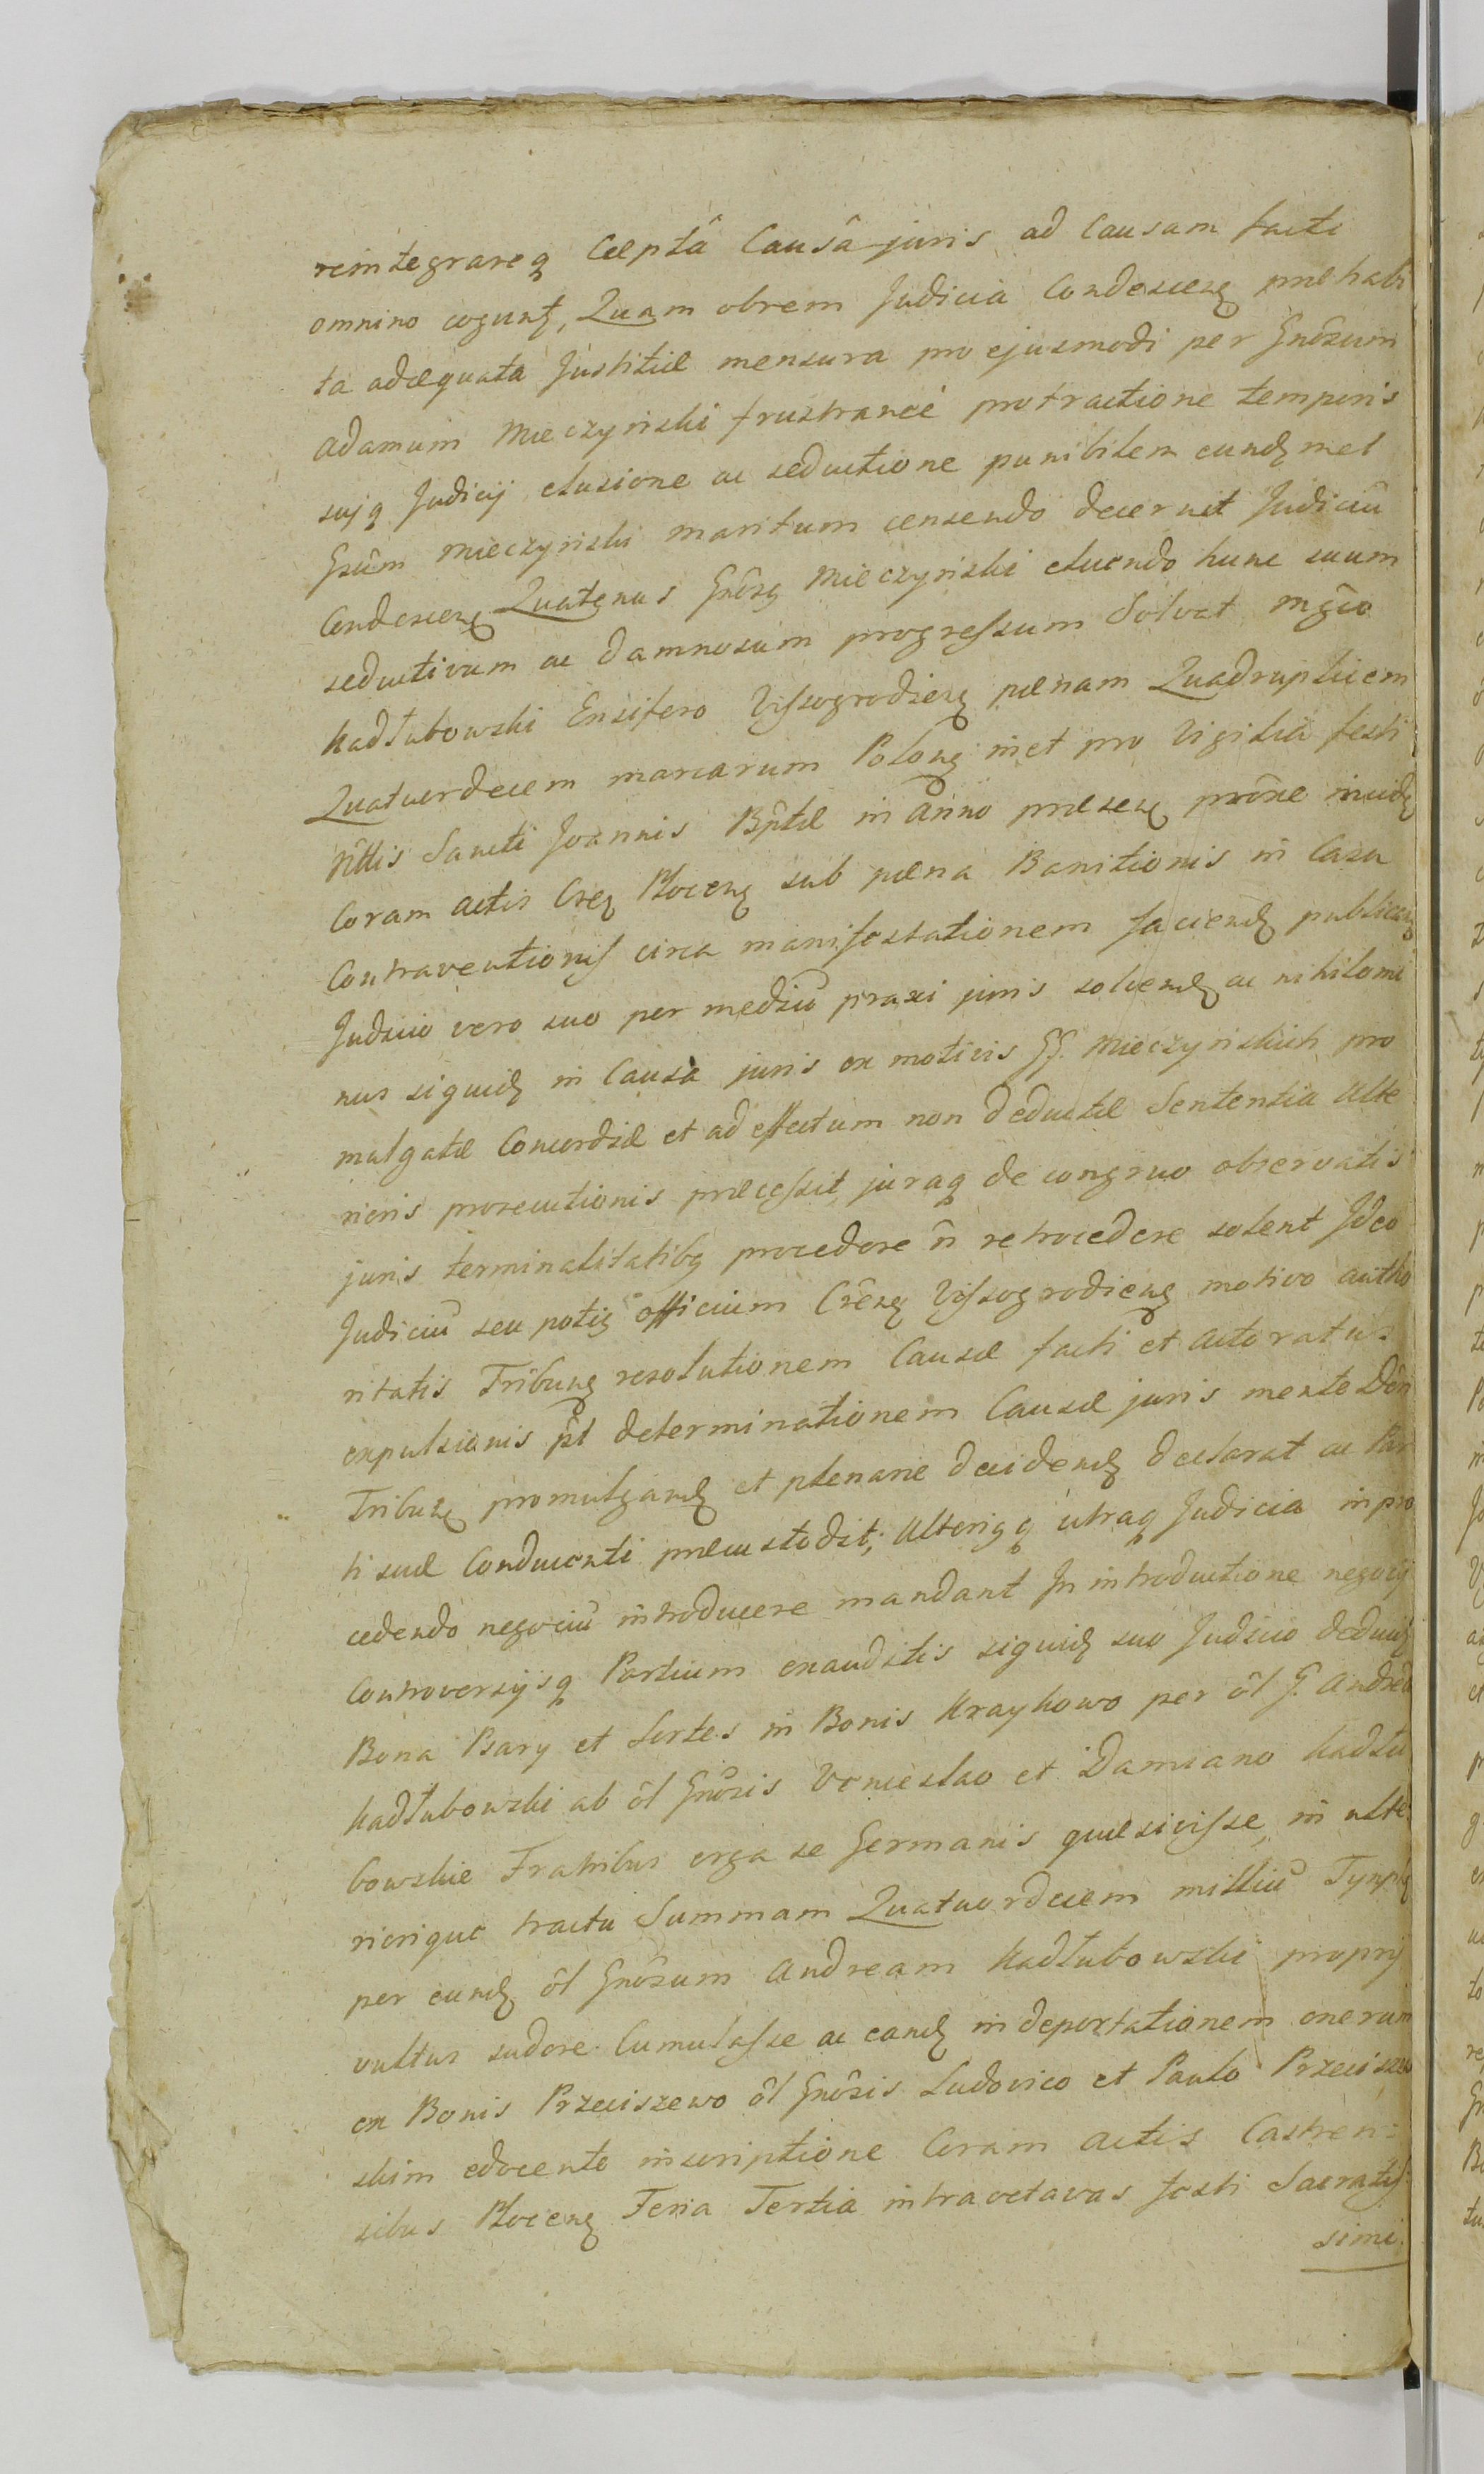 reintegrareq Cæptâ Causâ juris ad Causam facti
omnino cogunt, Quam obrem Judicia Condescenꝫ præhabi
ta adæquata Justitiæ mensura pro ejusmodi per Gnôsum
Adamum Mieczynski frustraneé protractione temporis
sujq Judicij elusione ac seductione punibilem eundꝫmet
Gsûm Mieczynski maritum censendo decernit Judiciū
Condescenꝫ Quatenus Gnôsꝫ Mieczynski eluendo hunc suum
seductivum ac damnosum progreſsum Solvat mgco
Kadłubowski Ensifero Viſsogrodienꝫ pœnam Quadruplicem
Quatuordecem marcarum Polonꝫ met pro Vigilia festi
Nttis Sancti Joannis Bptæ in Anno præsenꝫ prône incidꝫ
Coram actis Creꝫ Plocenꝫ sub pœna Banitionis in Casu
Contraventioniſ circa manifestationem faciendꝫ publicanꝫ
Judicio vero suo per mediū praxi juris solvendꝫ ac nihilomi
nus siquidꝫ in Causa juris ex motivis GG. Mieczynskich pro
mulgatæ Concordiæ et ad effectum non deductæ Sententia Ulte
rioris prosecutionis præceſsit, juraq de congruo observatis
juris terminalitatibꝫ procedere n̄ retrocedere solent Ideo
Judiciū seu potiꝫ officium Crênꝫ Viſsogrodienꝫ motivo autho
ritatis Tribunꝫ resolutionem Causæ facti et actoratus
expulsionis pt determinationem Causæ juris mente Dôni
Tribunꝫ promulgandꝫ et plenarie decidendꝫ declarat ac Par
ti suæ Conducenti præcustodit; Ulteriꝫq utraq Judicia in pro
cedendo negociū introducere mandant In introductione negocij
Controversijsq Partium exauditis siquidꝫ suo Judicio deducitꝫ
Bona Psary et Sortes in Bonis Kraykowo per ôl G. Andreā
Kadłubowski ab ôl Gnôsis Venceslao et Damiano Kadłu
bowskie Fratribus erga se Germanis quæsiviſse, in ulte
riorique tractu Summam Quatuordecem milliū Tynphꝫ
per eundꝫ ôl Gnôsum Andream Kadłubowski proprij
vultus sudore Cumulaſse ac eandꝫ in deportationem onerum
ex Bonis Przeciszewo ôl Gnôsis Ludovico et Paulo Przeciszew
skim edocente inscriptione Coram actis Castren:
sibus Plocenꝫ Feria Tertia intra octavas festi Sacratiſ
simi